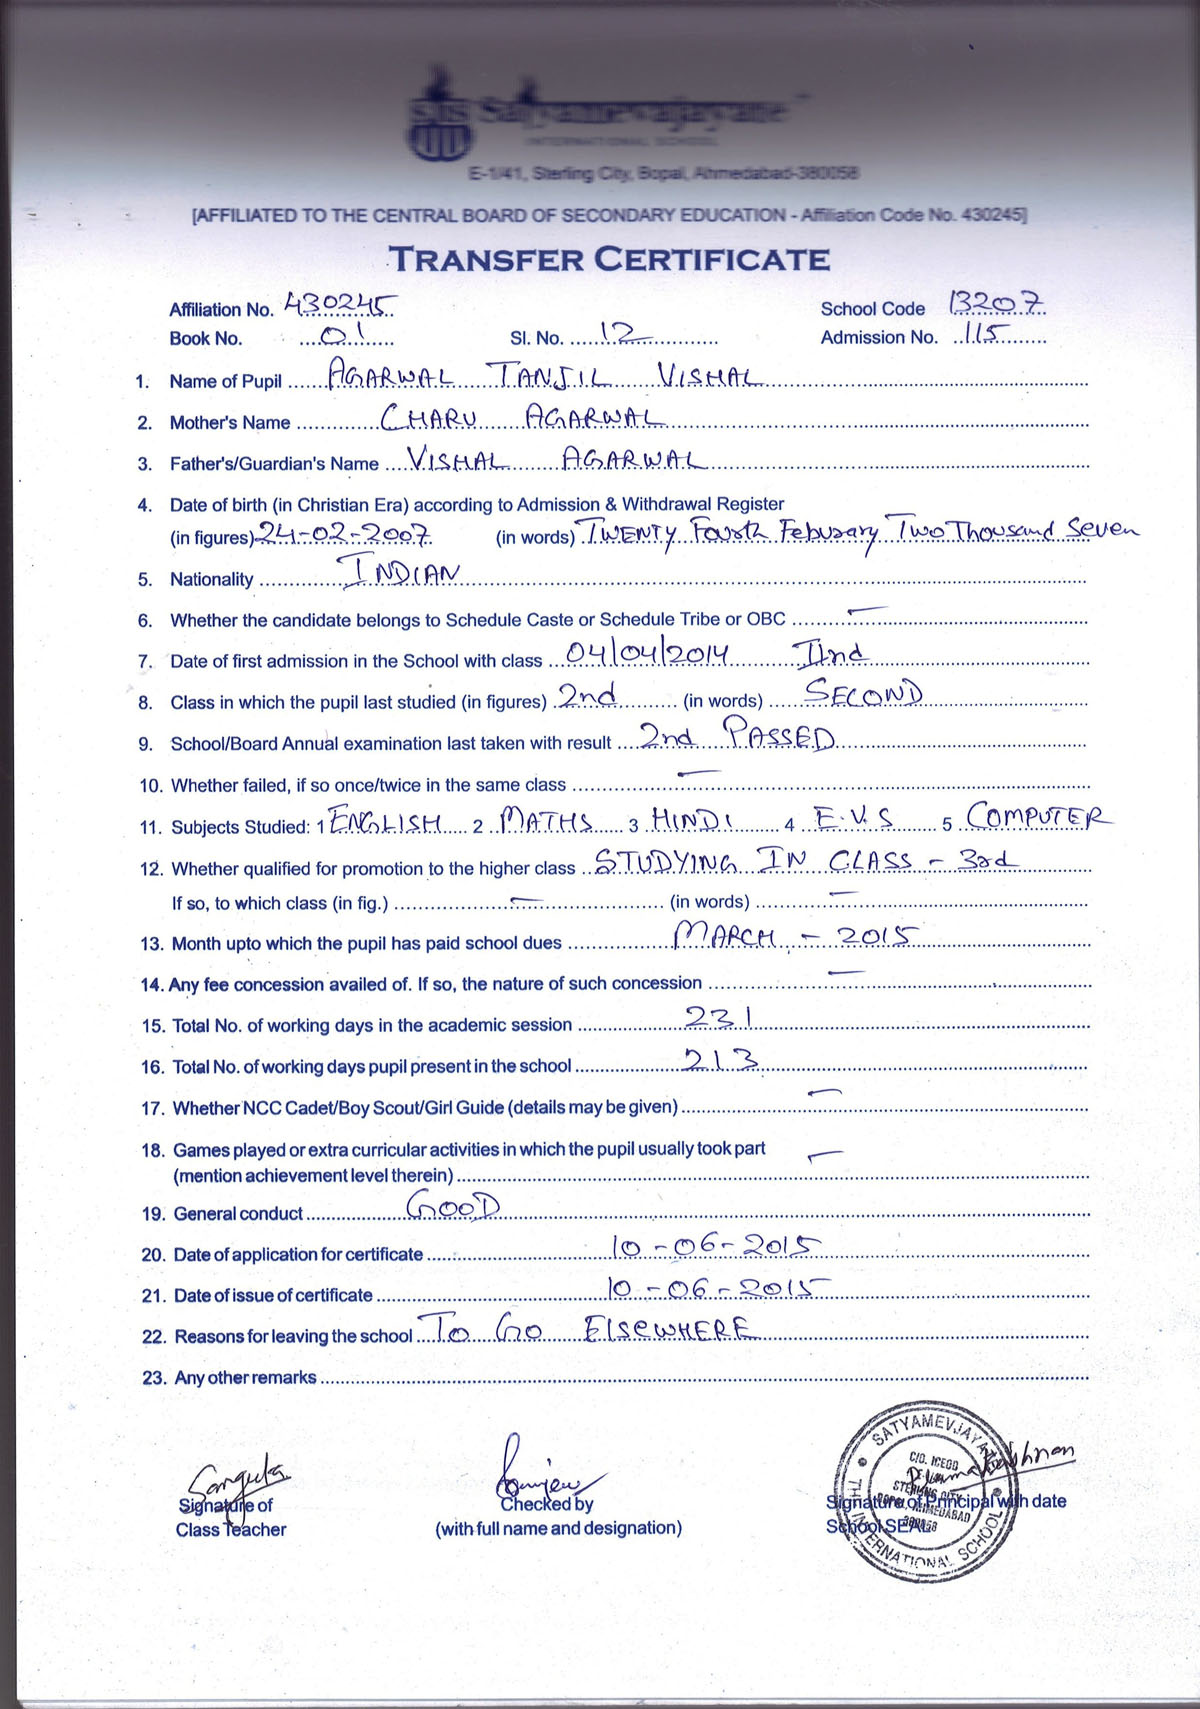 SIS Satyamevajayate
INTERNATIONAL SCHOOL
E-1/41, Sterling City, Bopal, Ahmedabad-380058
[AFFILIATED TO THE CENTRAL BOARD OF SECONDARY EDUCATION - Affiliation Code No. 430245]
TRANSFER CERTIFICATE
Affiliation No. 430245 School Code 13207
Book No. 01 Sl. No. 12 Admission No. 115
1. Name of Pupil AGARWAL TANJIL VISHAL
2. Mother's Name CHARU AGARWAL
3. Father's/Guardian's Name VISHAL AGARWAL
4. Date of birth (in Christian Era) according to Admission & Withdrawal Register
(in figures) 24-02-2007 (in words) TWENTY Fourth Febuary Two Thousand Seven
5. Nationality INDIAN
6. Whether the candidate belongs to Schedule Caste or Schedule Tribe or OBC —
7. Date of first admission in the School with class 04/04/2014 IInd
8. Class in which the pupil last studied (in figures) 2nd (in words) SECOND
9. School/Board Annual examination last taken with result 2nd PASSED
10. Whether failed, if so once/twice in the same class —
11. Subjects Studied: 1 ENGLISH 2 MATHS 3 HINDI 4 E.V.S 5 COMPUTER
12. Whether qualified for promotion to the higher class STUDYING IN CLASS - 3rd
If so, to which class (in fig.) — (in words) —
13. Month upto which the pupil has paid school dues MARCH - 2015
14. Any fee concession availed of. If so, the nature of such concession —
15. Total No. of working days in the academic session 231
16. Total No. of working days pupil present in the school 213
17. Whether NCC Cadet/Boy Scout/Girl Guide (details may be given) —
18. Games played or extra curricular activities in which the pupil usually took part
(mention achievement level therein) —
19. General conduct GOOD
20. Date of application for certificate 10-06-2015
21. Date of issue of certificate 10-06-2015
22. Reasons for leaving the school To Go ElseWHERE
23. Any other remarks
Sangeeta
Signature of
Class Teacher
Checked by
(with full name and designation)
Signature of Principal with date
School SEAL
SATYAMEVJAYATE
THE INTERNATIONAL SCHOOL
C/O. ICEOD
STERLING CITY
BOPAL, AHMEDABAD